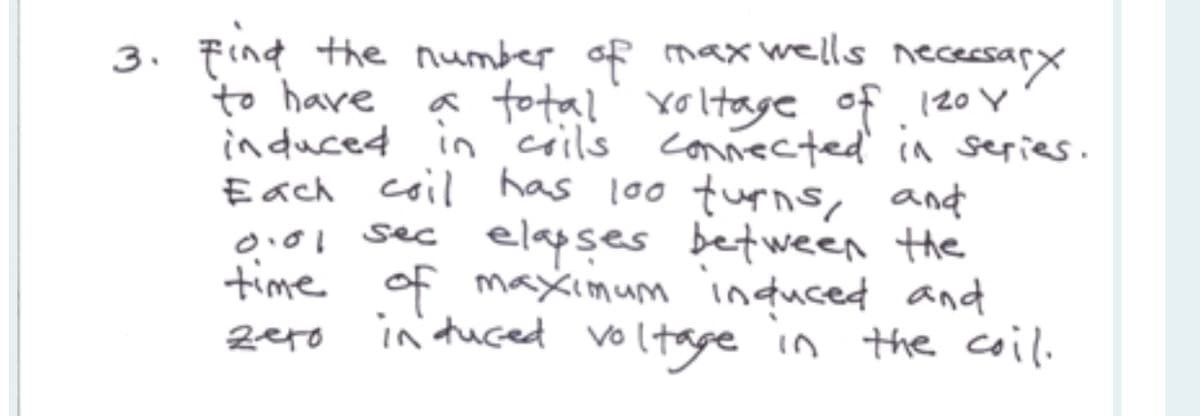 3. Find the number of maxwells necessary
to have a total voltage of 120 V
induced in coils connected in series.
Each coil has 100 turns, and
0.01 sec elapses between the
time of maximum induced and
zero induced voltage in the coil.